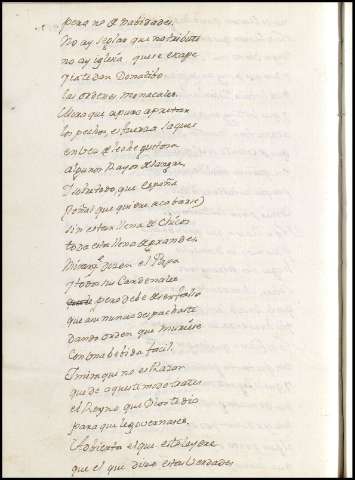 pena no de nabidades.
No ay seglar que no tribute
no ay iglesia que se exepte
y este dan Donatibo
las ordenes monacales.
Mira que a puro apretar
los pechos, es fuerza saquen
en loca de leche gustosa
algunos Rayos de sangre,
Y sobre todo que España
señal que quiere acabarse)
sin estar llena de Chicos
toda esta llena de grandes.
Miran dizen el Papa
y todos sus Cardenales
pero debe de ser fallo
que aun nunca despachaste
Dando orden que muriese
con una bebida facil.
Y mira que no es Razon
que de aqueste modo trates
el Reyno que Dios te dio
para que le governases.
Advierta el que esto leyere
que el que dize estas verdades